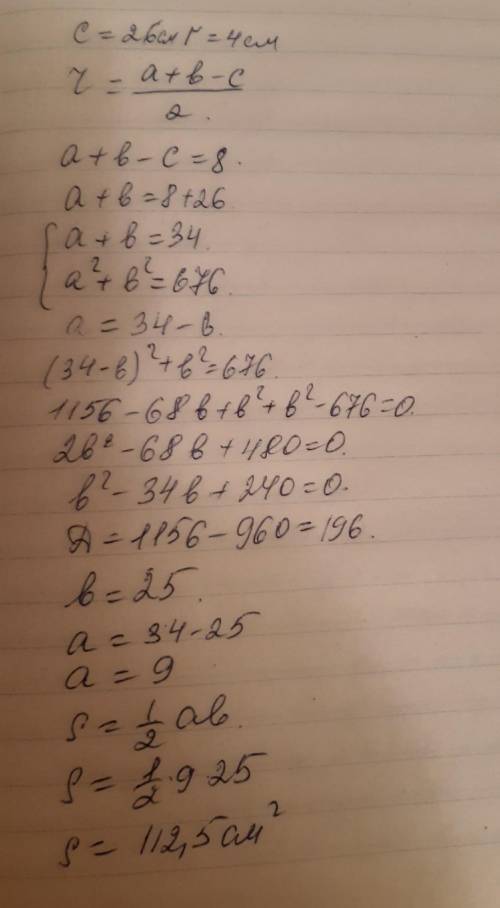 c = 26см r = 4см
r = a+b-c / 2.
a+b-c=8.
a+b=8+26
{ a+b=34.
a²+b²=676.
a=34-b.
(34-b)²+b²=676.
1156-68b+b²+b²-676=0.
2b²-68b+480=0.
b²-34b+240=0.
Д=1156-960=196.
b=25.
a=34-25
a=9
S=1/2 ab.
S=1/2·9·25
S=112,5см²